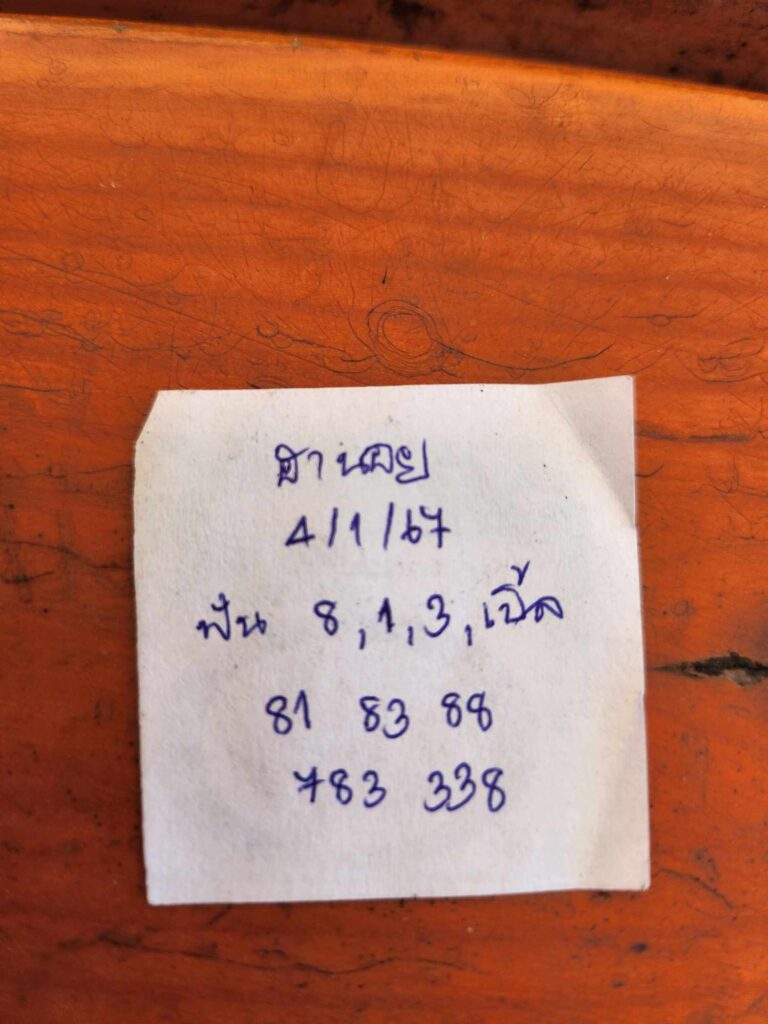 ฮานอย
4/1/67
ฟัน 8,1,3,เบิ้ล
81 83 88
783 338